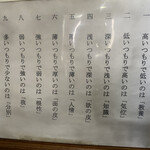 一 高いつもりで低いのは「教養」
二 低いつもりで高いのは「気位」
三 深いつもりで浅いのは「知識」
四 浅いつもりで深いのは「欲の皮」
五 厚いつもりで薄いのは「人情」
六 薄いつもりで厚いのは「面の皮」
七 強いつもりで弱いのは「根性」
八 弱いつもりで強いのは「我」
九 多いつもりで少ないのは「分別」